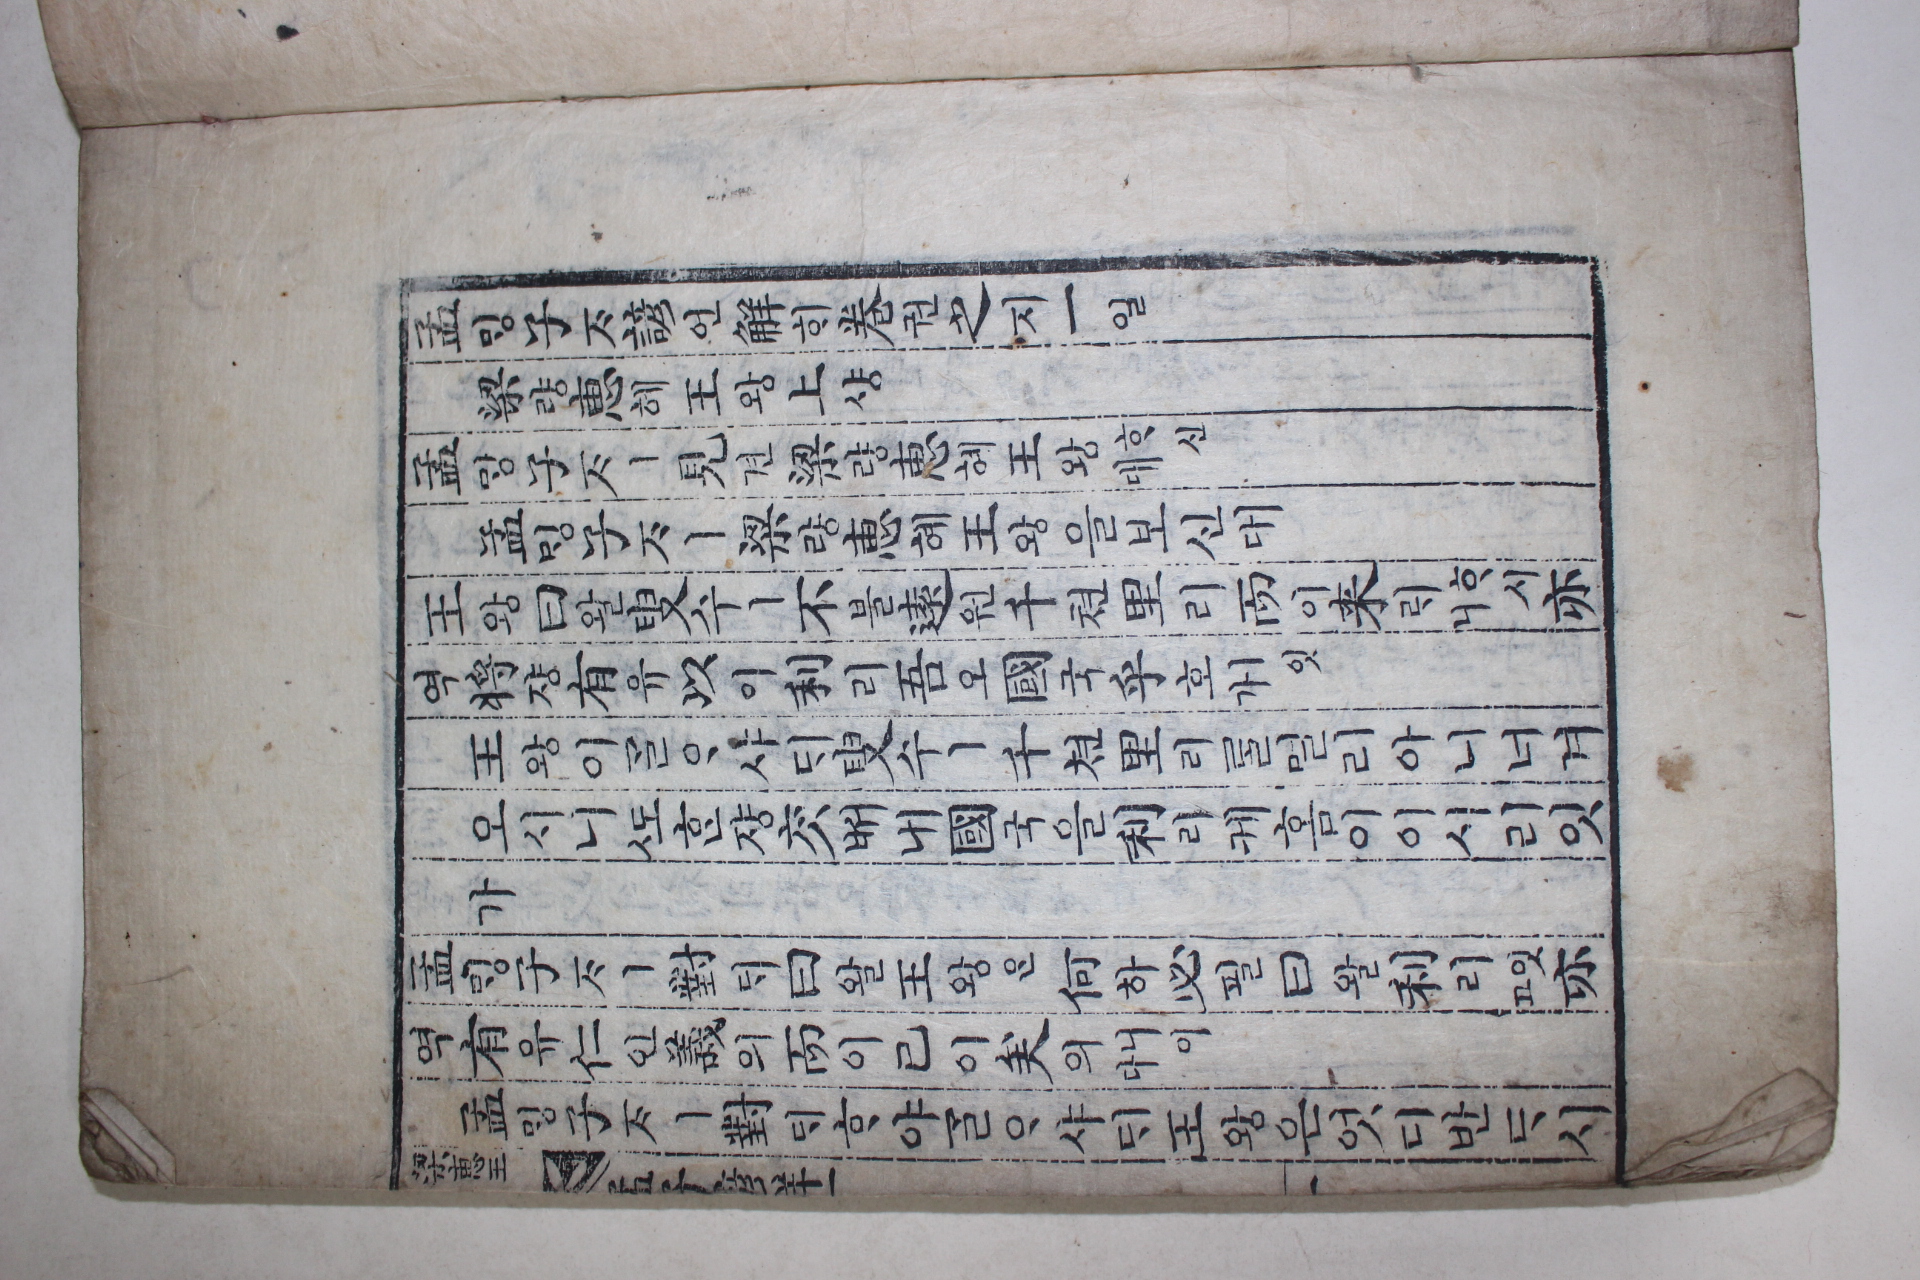 孟밍子ᄌᆞ諺언解ᄒᆡ卷권之지一일
梁량惠혜王왕上샹
孟밍子ᄌᆞㅣ見견梁량惠혜王왕ᄒᆞ신대
孟밍子ᄌᆞㅣ梁량惠혜王왕을보신대
王왕曰왈叟수ㅣ不블遠원千쳔里리而이來ᄅᆡᄒᆞ시니亦
역將쟝有유以이利리吾오國국乎호잇가
王왕이ᄀᆞᆯᄋᆞ샤ᄃᆡ叟수ㅣ千쳔里리를멀리아니너겨
오시니ᄯᅩᄒᆞᆫ쟝ᄎᆞᆺᄡᅥ내國국을利리케홈이이시리잇
가
孟밍子ᄌᆞㅣ對ᄃᆡ曰왈王왕은何하必필曰왈利리잇고亦
역有유仁인義의而이已이矣의니이다
孟밍子ᄌᆞㅣ對ᄃᆡᄒᆞ야ᄀᆞᆯᄋᆞ샤ᄃᆡ王왕은엇디반ᄃᆞ시
梁惠王
孟子諺解一